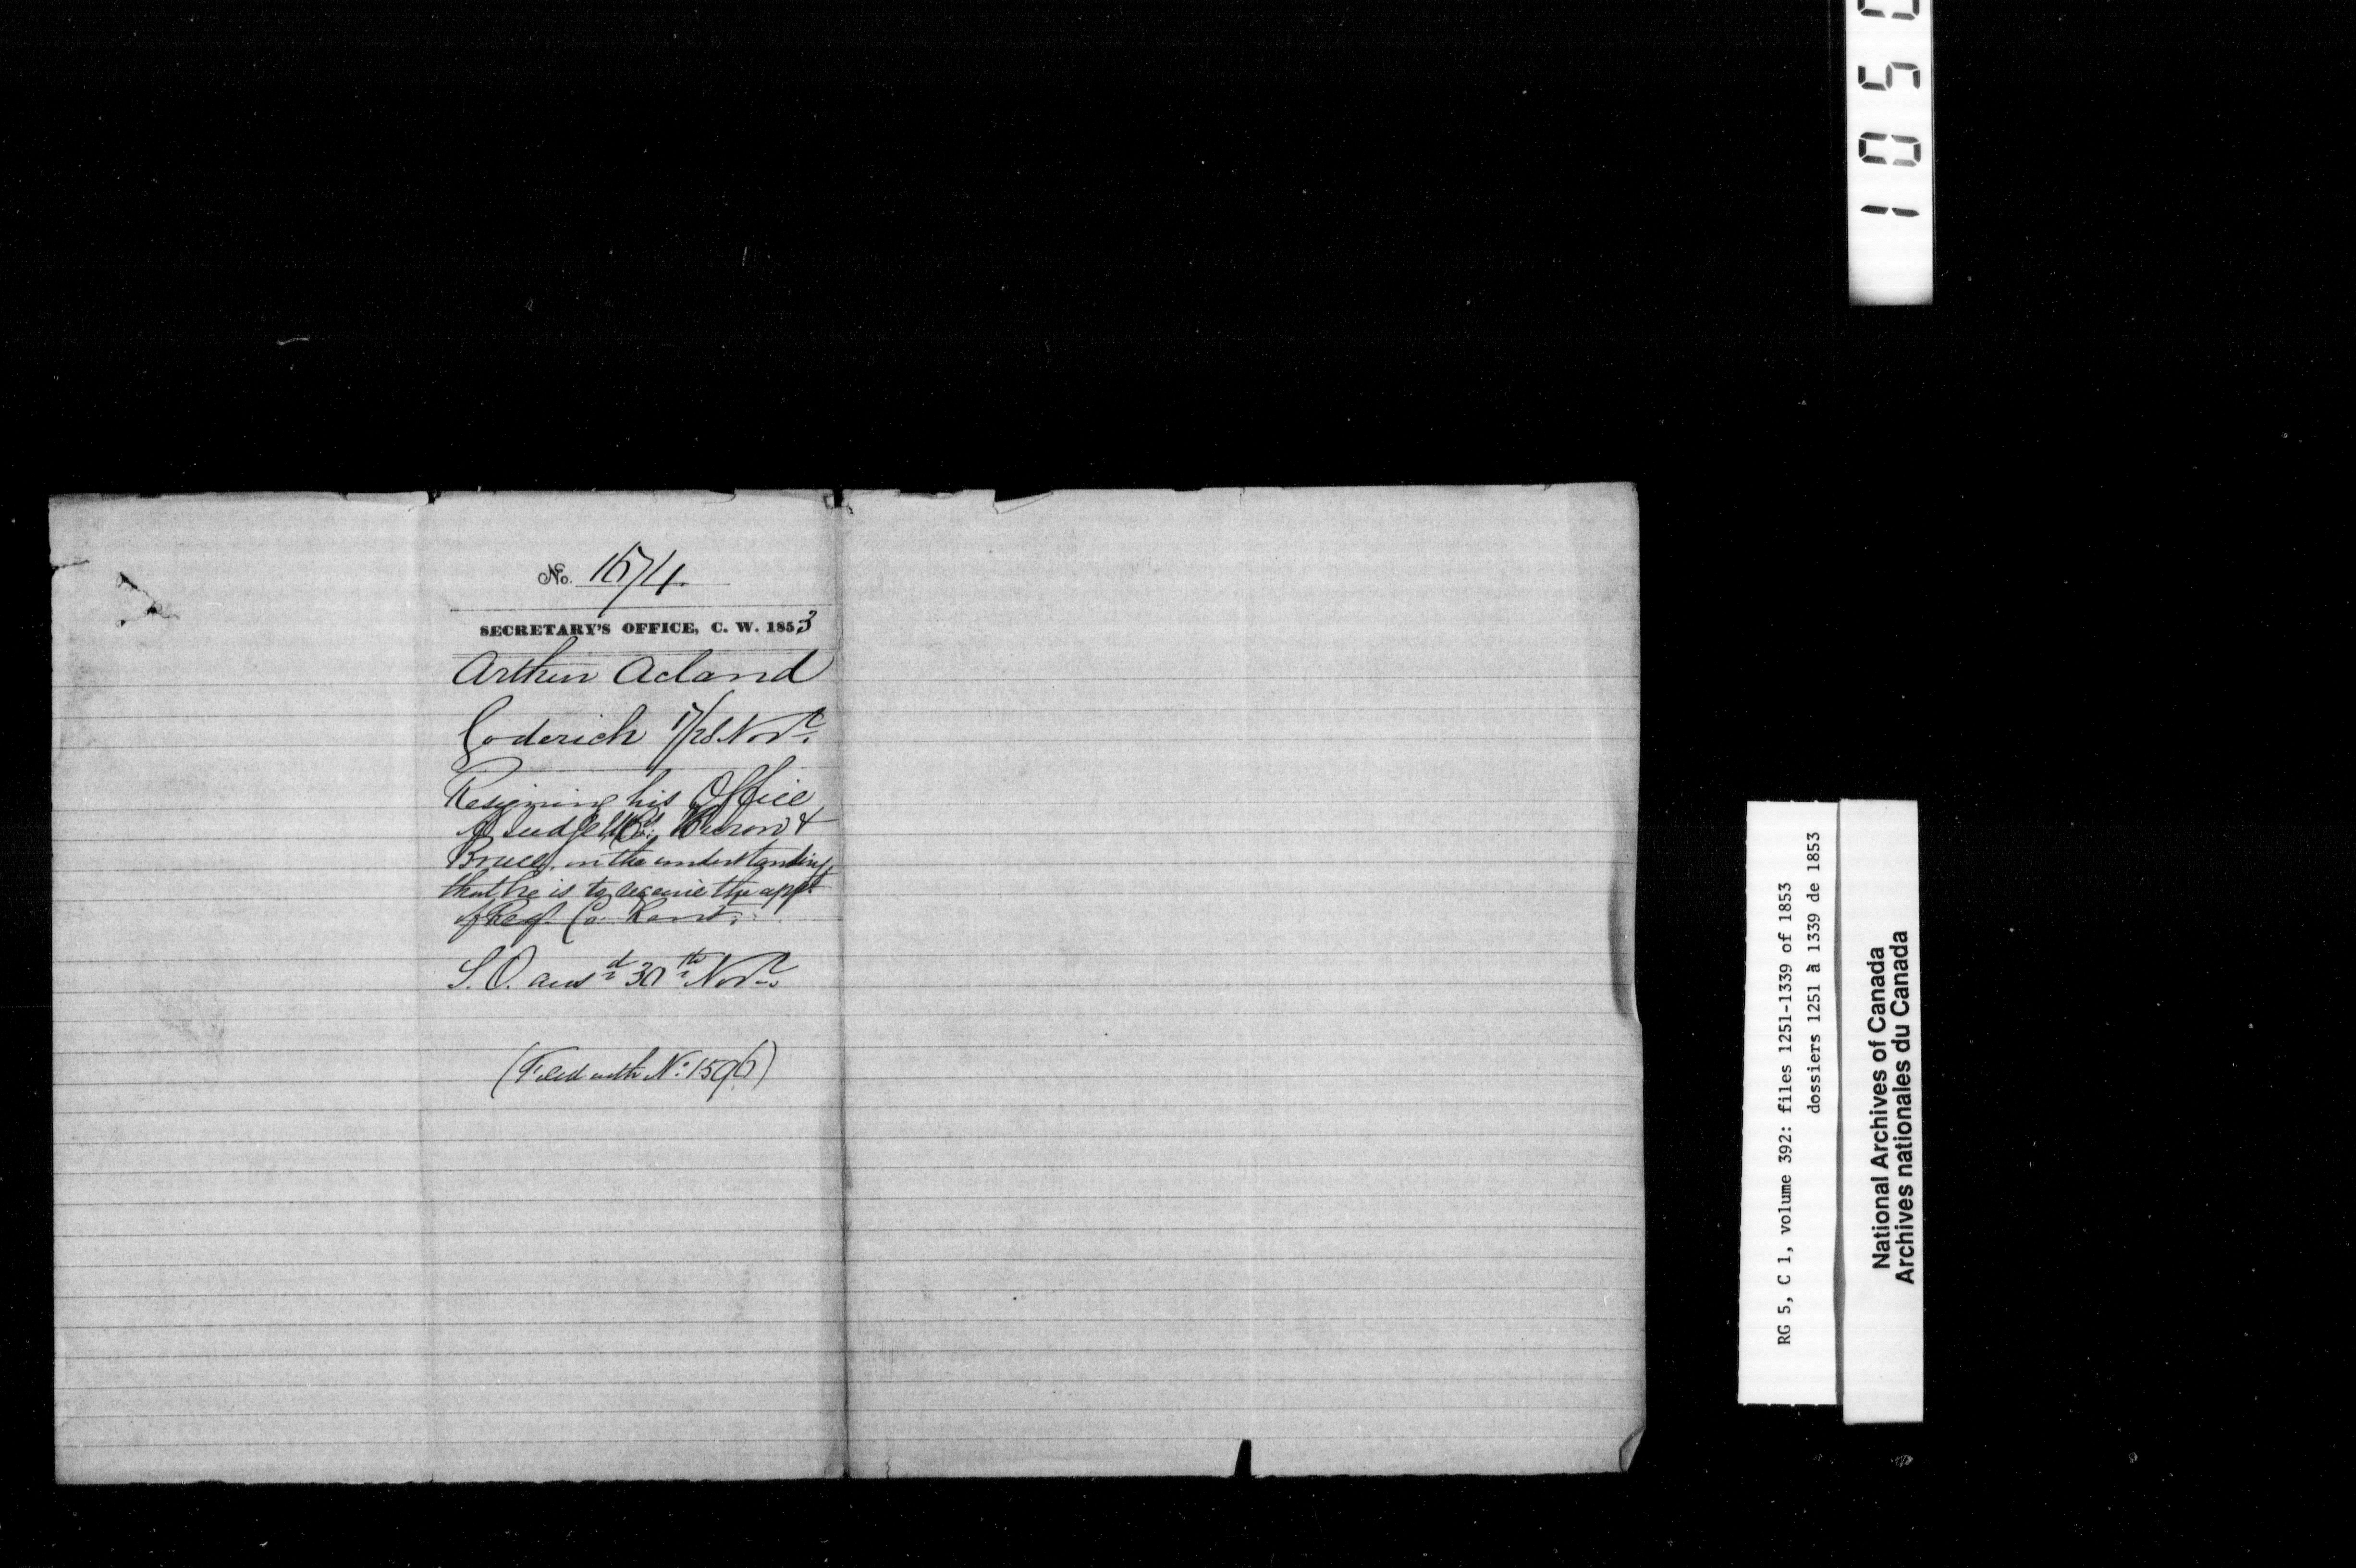 No. 1574
SECRETARY'S OFFICE, C. W. 1853
Arthur Acland
Goderich 17/28 Novr.
Resigning his Office
of Judge Huron &
Bruce, on the understanding
that he is to receive the appt
of Regr Co. Kent.
S.O. ansd 30th Novr.
(Filed with No. 1596)
1050
RG 5, C 1, volume 392: files 1251-1339 of 1853
dossiers 1251 à 1339 de 1853
National Archives of Canada
Archives nationales du Canada